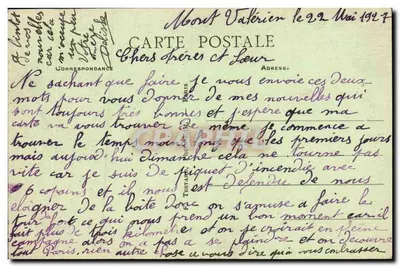 Mont Valérien le 22 Mai 1927
CARTE POSTALE
CORRESPONDANCE
ADRESSE
Chers frères et Sœur
Ne sachant que faire je vous envoie ces deux
mots pour vous donner de mes nouvelles qui
sont toujours très bonnes et j'espère que ma
carte va vous trouver de même. Je commence a
trouver le temps moins long que les premiers jours
mais aujourd'hui Dimanche cela ne tourne pas
vite car je suis de piquet d'incendie avec
6 copains et il nous est défendu de nous
éloigner de la boite donc on s'amuse a faire le
tour du fort ce qui nous prend un bon moment car il
fait plus de trois kilomètre et on se croirait en pleine
campagne alors on a pas a se plaindre et on découvre
tout Paris, rien autre chose a vous dire que vous embrasser
A bientôt
de vos
nouvelles
car cela
m'occupe
un peu